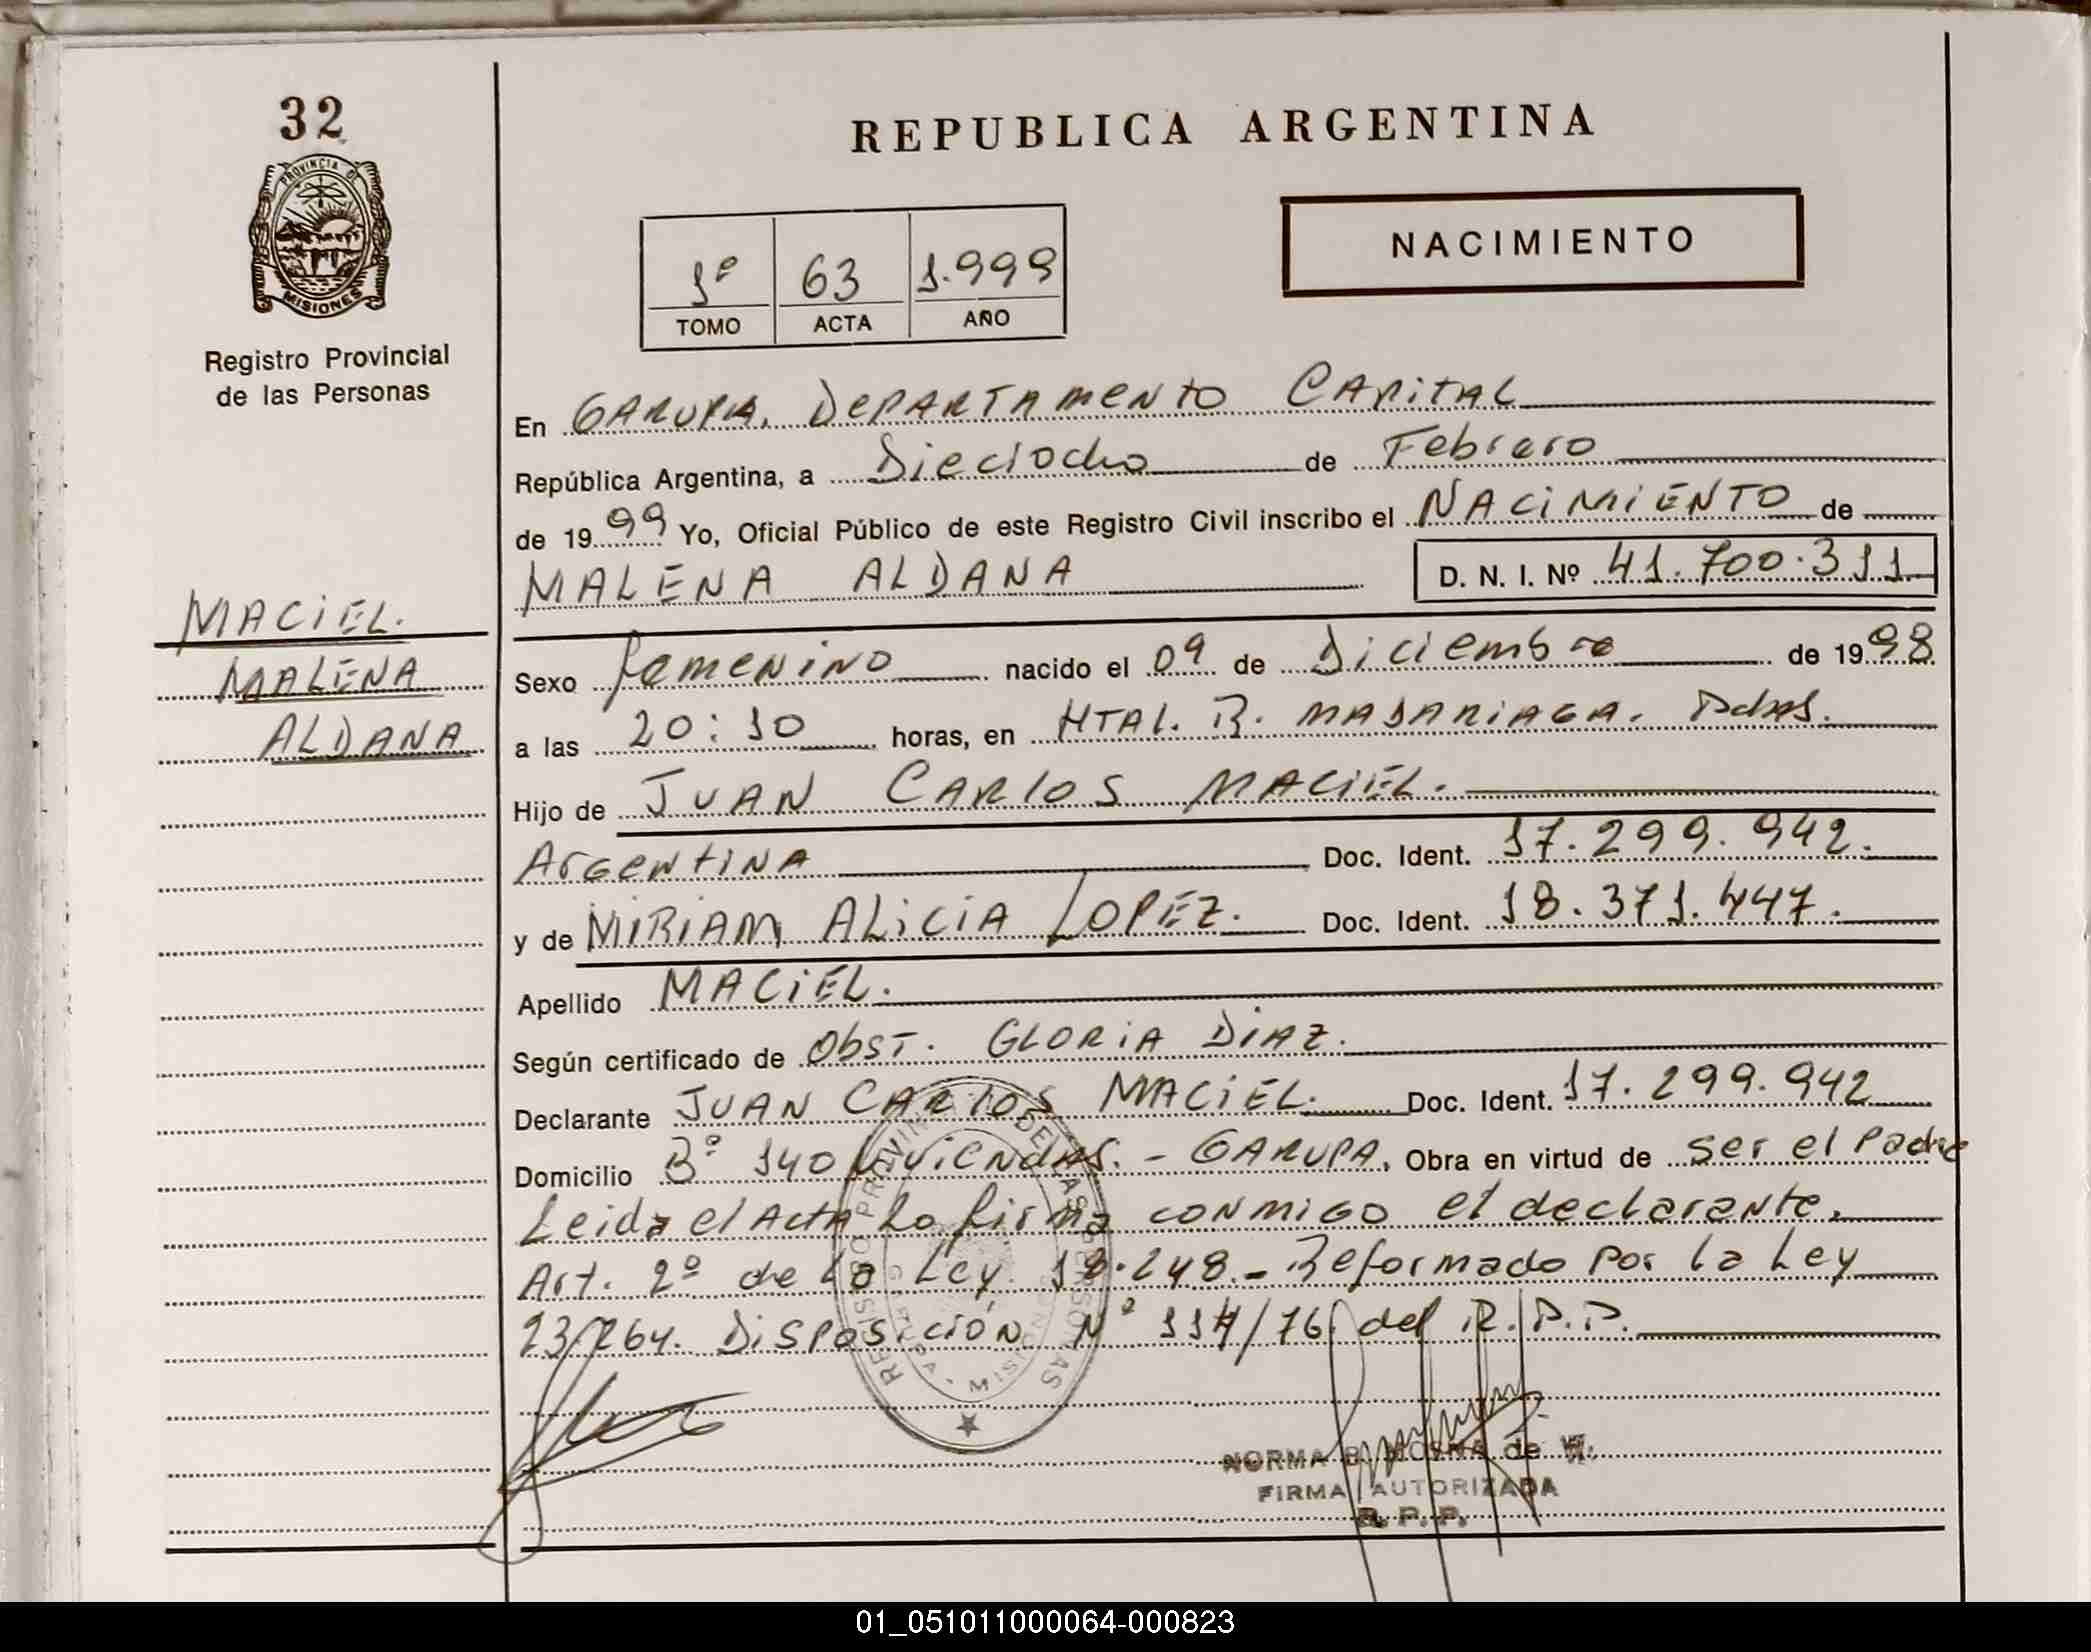 32
PROVINCIA DE
MISIONES
Registro Provincial
de las Personas
REPUBLICA ARGENTINA
NACIMIENTO
1º 63 1.999
TOMO ACTA AÑO
En GARUPA, DEPARTAMENTO CAPITAL
República Argentina, a Dieciocho de Febrero
de 1999 Yo, Oficial Público de este Registro Civil inscribo el NACIMIENTO de
MALENA ALDANA D. N. I. Nº 41.700.311
MACIEL.
MALENA
ALDANA
Sexo femenino nacido el 09 de Diciembre de 1998
a las 20:10 horas, en HTAL. R. MADARIAGA. Pdas.
Hijo de JUAN CARLOS MACIEL.
Argentina Doc. Ident. 17.299.942.
y de MIRIAM ALICIA LOPEZ. Doc. Ident. 18.371.447.
Apellido MACIEL.
Según certificado de Obst. GLORIA DIAZ.
Declarante JUAN CARLOS MACIEL. Doc. Ident. 17.299.942
Domicilio Bº 140 Viviendas. - GARUPA, Obra en virtud de ser el padre
Leida el Acta La firma conmigo el declarante.
Art. 2º de la Ley 18.248.- Reformado por la Ley
23.264. Disposición Nº 117/76 del R.P.P.
REGISTRO PROVINCIAL DE LAS PERSONAS
GARUPA - MISIONES
NORMA B. de W.
FIRMA AUTORIZADA
R. P. P.
01_051011000064-000823